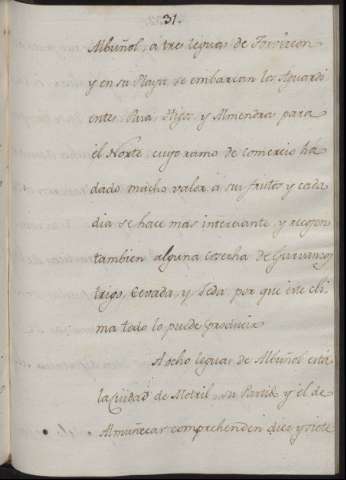 31.
Albuñol, a tres leguas de Torvizcon
y en su Playa se embarcan los Aguardi
entes, Pasa, Higos, y Almendra para
el Norte, cuyo ramo de comercio ha
dado mucho valor á sus frutos y cada
dia se hace mas interesante, y recogen
tambien alguna cosecha de Garvanzos
trigo, Cevada, y Seda, por que este cli
ma todo lo puede producir
A ocho leguas de Albuñol está
la Ciudad de Motril, su Partido y el de
Almuñecar comprehenden diez y siete